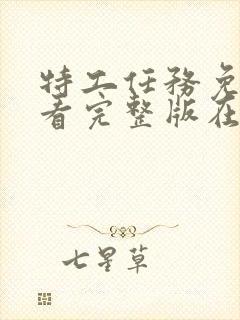 特工任务免
看完整版在
七星草